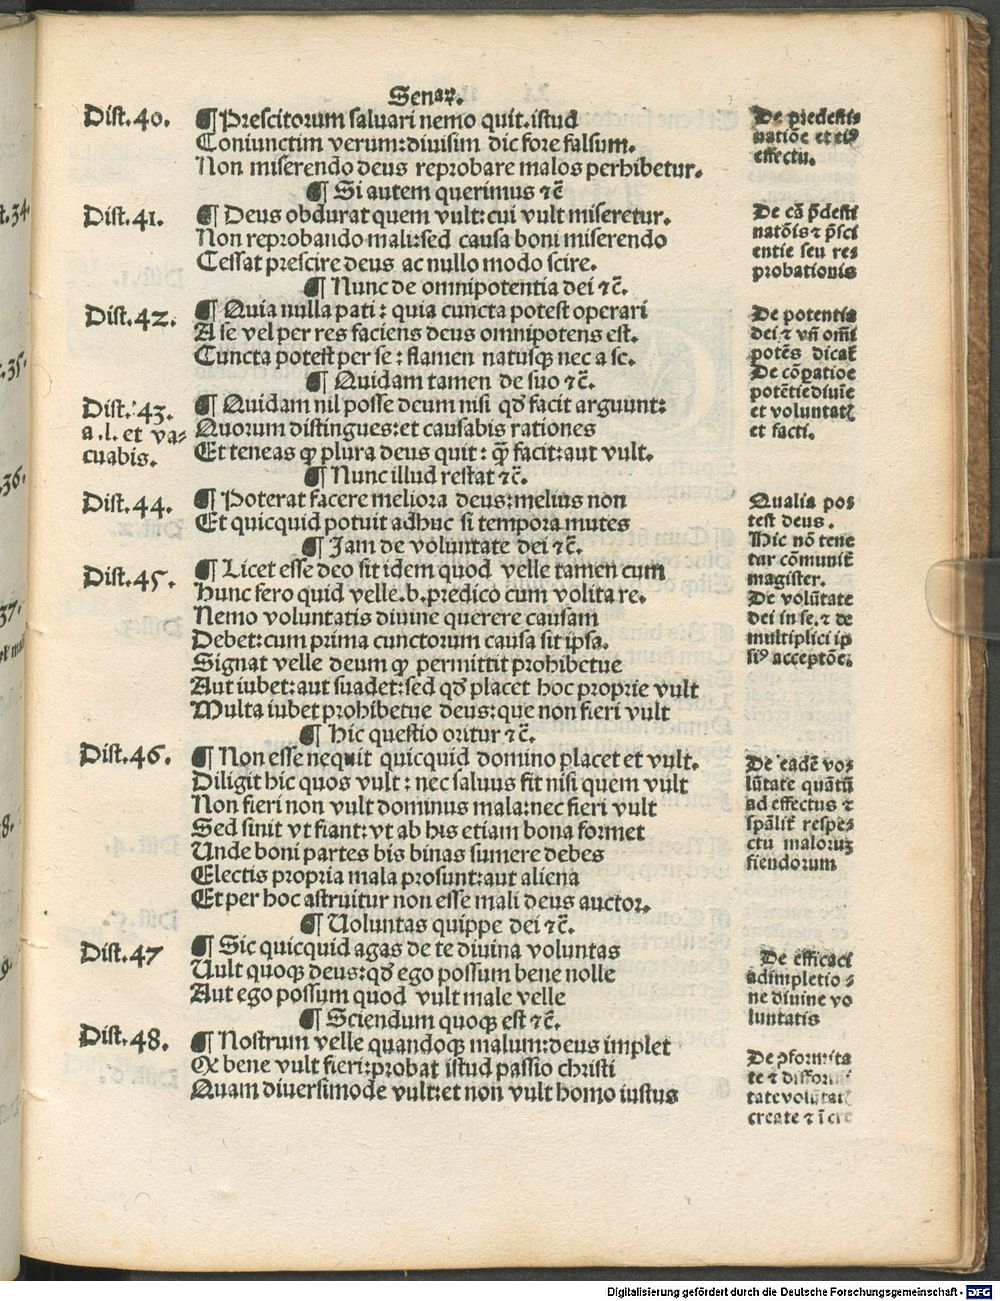 Senaꝛ.
Dist. 40.
¶ Prescitorum saluari nemo quit. istud
Coniunctim verum: diuisim dic fore falsum.
Non miserendo deus reprobare malos perhibetur.
De predesti⸗
natiõe et eiꝰ
effectu.
¶ Si autem querimus ⁊c̃
Dist. 41.
¶ Deus obdurat quem vult: cui vult miseretur.
Non reprobando mali: sed causa boni miserendo
Cessat prescire deus ac nullo modo scire.
De cã p̃desti
natõis ⁊ p̃sci
entie seu res
probationis
¶ Nunc de omnipotentia dei ⁊c̃.
Dist. 42.
¶ Quia nulla pati: quia cuncta potest operari
A se vel per res faciens deus omnipotens est.
Cuncta potest per se: flamen natusqꝫ nec a se.
De potentia
dei ⁊ vñ om̃i
potẽs dicat̃
¶ Quidam tamen de suo ⁊c̃.
Dist. 43.
a .l. et va⸗
cuabis.
¶ Quidam nil posse deum nisi qđ facit arguunt:
Quorum distingues: et causabis rationes
Et teneas ꝙ plura deus quit: q̃ȝ facit: aut vult.
De cõꝑatioe
potẽtie diuïe
et voluntat̃
et facti.
¶ Nunc illud restat ⁊c̃.
Dist. 44.
¶ Poterat facere meliora deus: melius non
Et quicquid potuit adhuc si tempora mutes
Qualia pos
test deus.
Hic nõ tene
tur cõmunit̃
magister.
¶ Jam de voluntate dei ⁊c̃.
Dist. 45.
¶ Licet esse deo sit idem quod velle tamen cum
Hunc fero quid velle. b. predico cum volita re.
Nemo voluntatis diuine querere causam
Debet: cum prima cunctorum causa sit ipsa.
Signat velle deum ꝙ permittit prohibetue
Aut iubet: aut suadet: sed qđ placet hoc proprie vult
Multa iubet prohibetue deus: que non fieri vult
De volũtate
dei in se. ⁊ de
multiplici ip
siꝰ acceptõe.
¶ Hic questio oritur ⁊c̃.
Dist. 46.
¶ Non esse nequit quicquid domino placet et vult.
Diligit hic quos vult: nec saluus fit nisi quem vult
Non fieri non vult dominus mala: nec fieri vult
Sed sinit vt fiant: vt ab his etiam bona formet
Unde boni partes bis binas sumere debes
Electis propria mala prosunt: aut aliena
Et per hoc astruitur non esse mali deus auctor.
De eadẽ vo⸗
lũtate quãtũ
ad effectus ⁊
sp̃alit̃ respe⸗
ctu maloruꝫ
fiendorum
¶ Uoluntas quippe dei ⁊c̃.
Dist. 47
¶ Sic quicquid agas de te diuina voluntas
Uult quoqꝫ deus: qđ ego possum bene nolle
Aut ego possum quod vult male velle
De efficaci
adimpletio⸗
ne diuine vo
luntatis
¶ Sciendum quoqꝫ est ⁊c̃.
Dist. 48.
¶ Nostrum velle quandoqꝫ malum: deus implet
Qꝫ bene vult fieri: probat istud passio christi
Quam diuersimode vult: et non vult homo iustus
De ꝯformita
te ⁊ difformi
tate volũtat̃
create ⁊ ĩcre
Digitalisierung gefördert durch die Deutsche Forschungsgemeinschaft - DFG